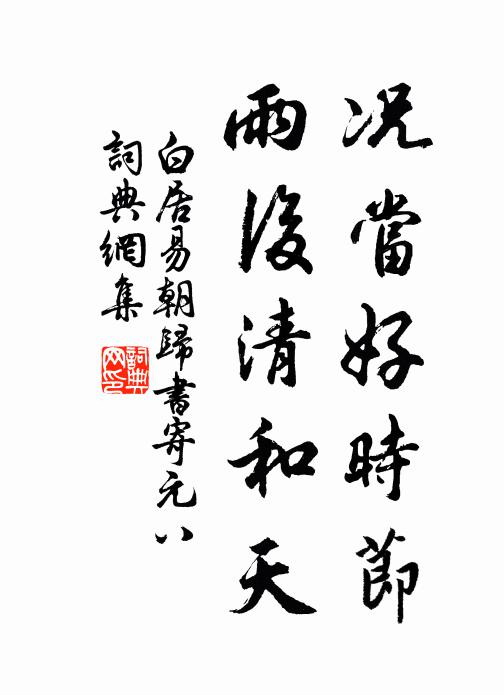 况當好時節
雨後清和天
白居易朝歸書寄元八
詞典網集
詞典網印